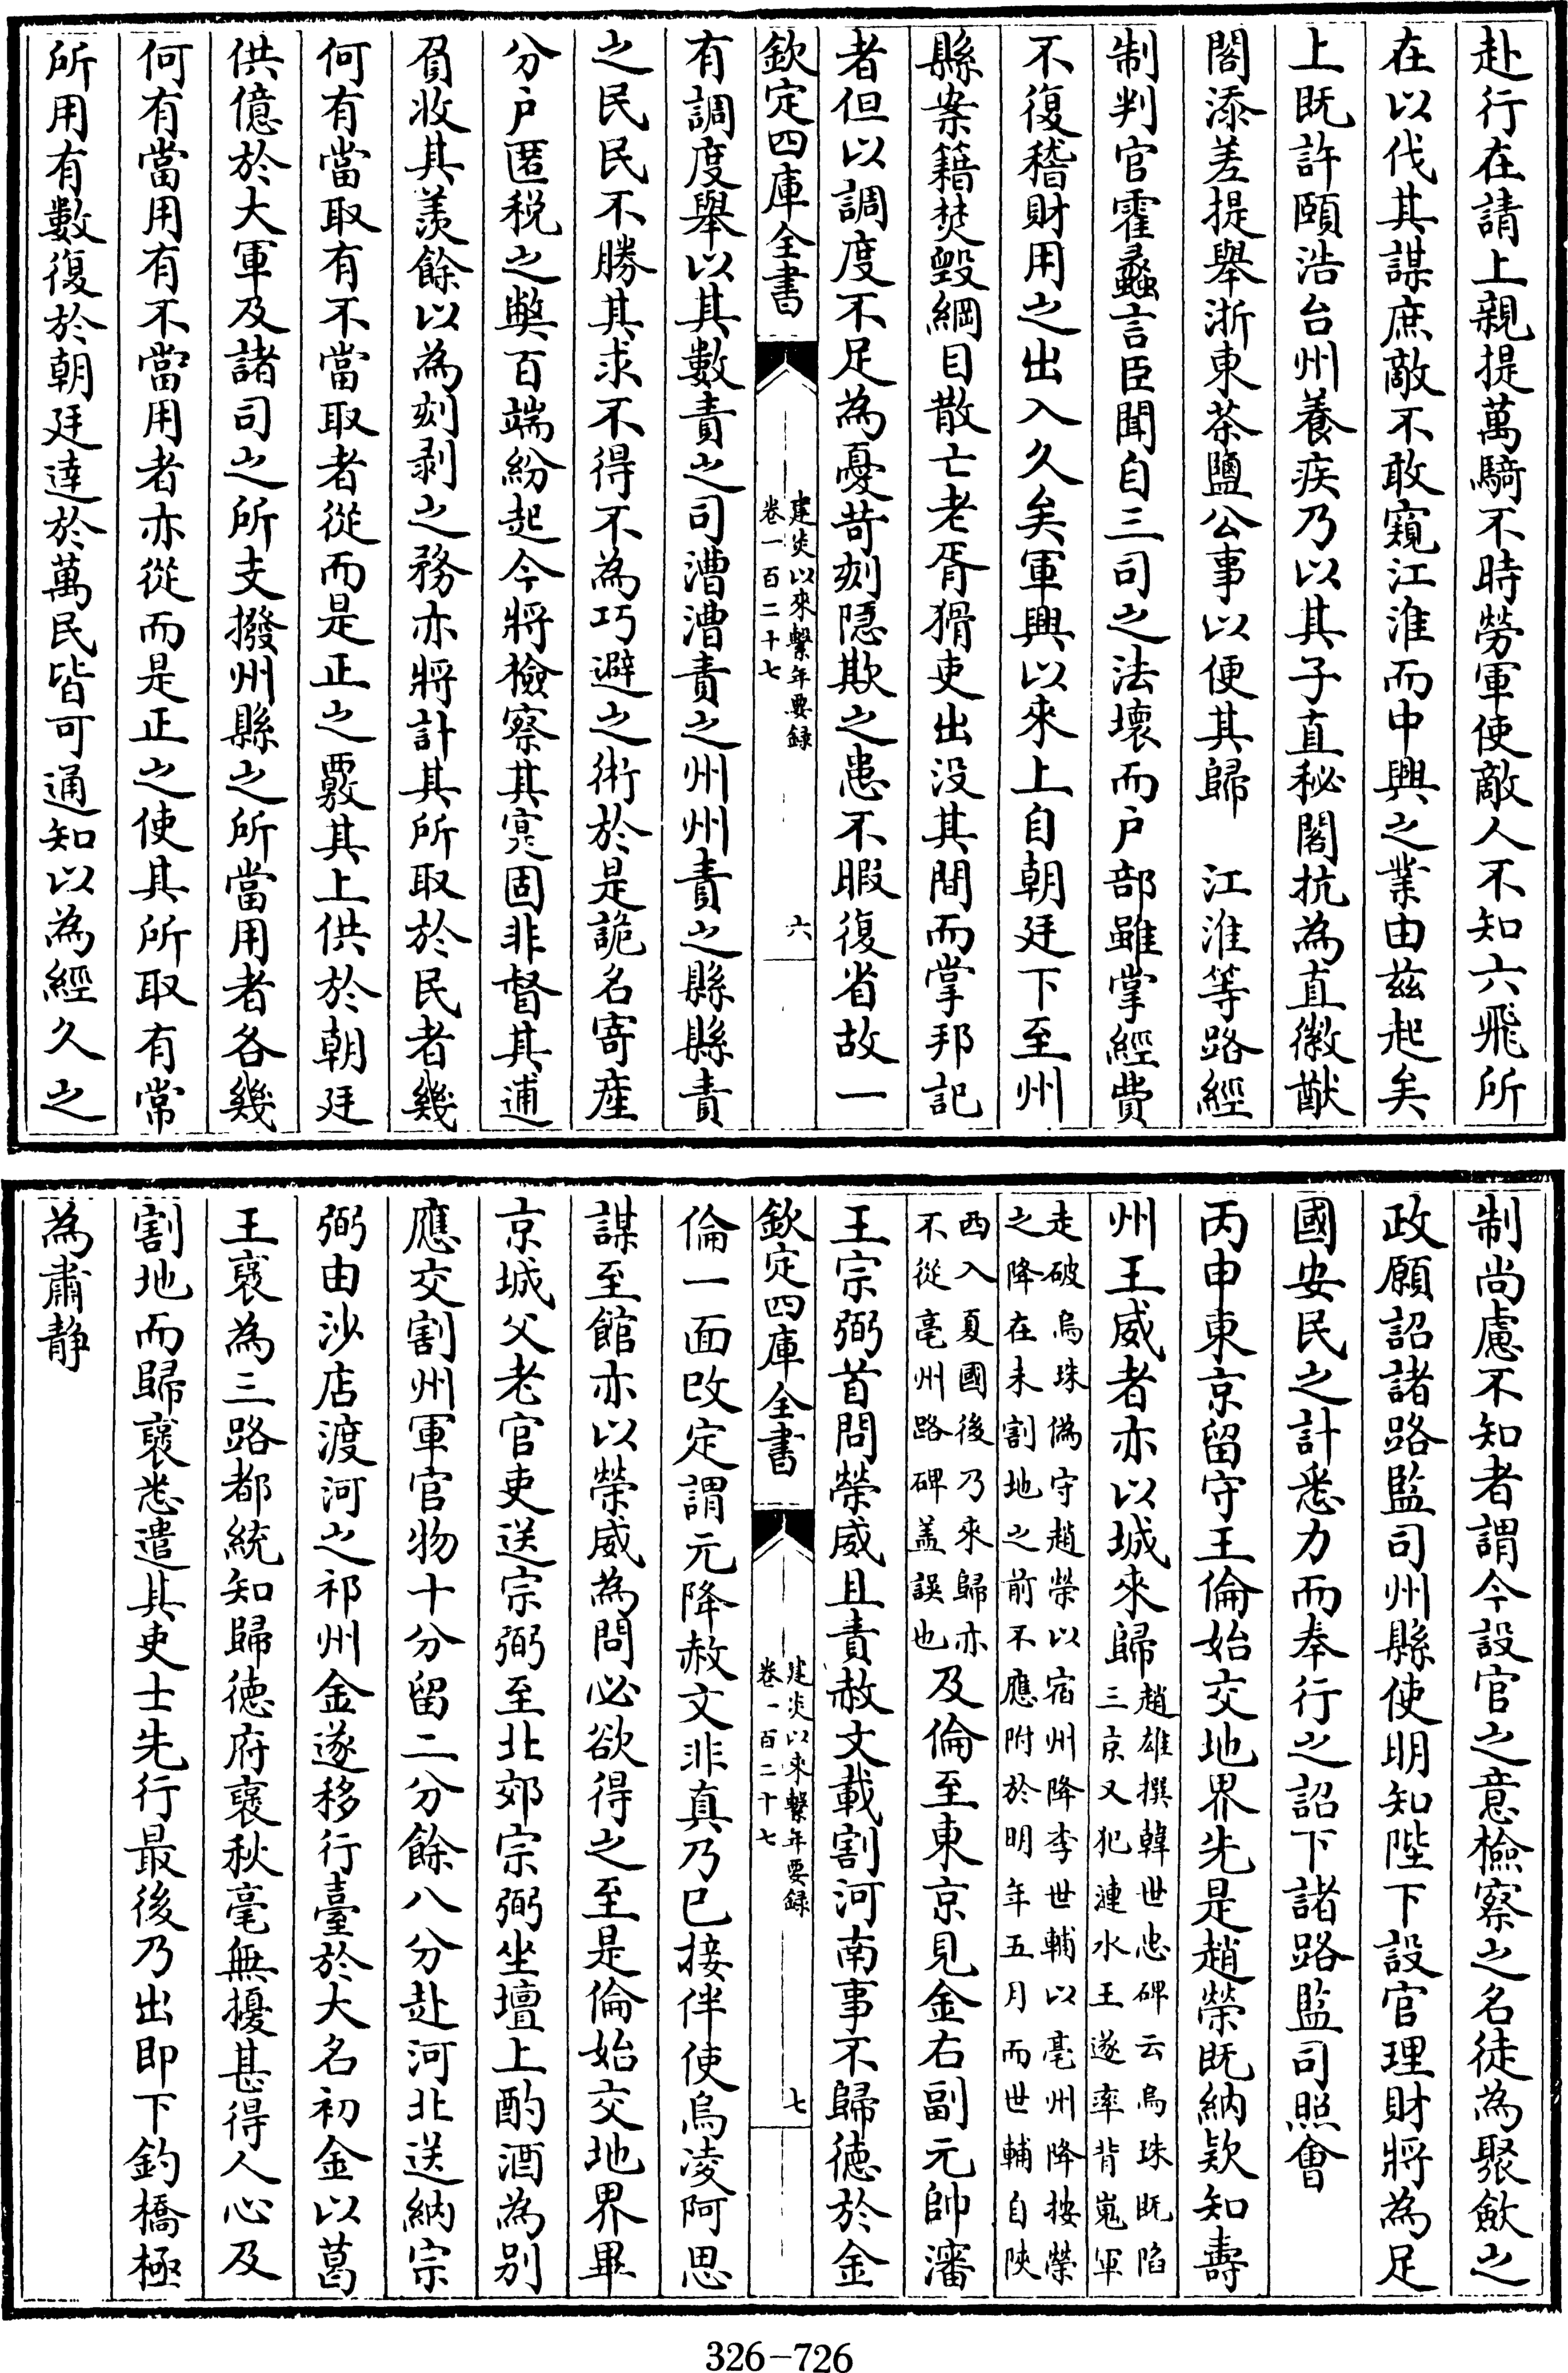 赴行在請上親提萬騎不時勞軍使敵人不知六飛所
在以伐其謀庶敵不敢窺江淮而中興之業由兹起矣
上既許頤浩台州養疾乃以其子直秘閣抗為直徽猷
閣添差提舉浙東茶鹽公事以便其歸　江淮等路經
制判官霍蠡言臣聞自三司之法壞而户部雖掌經費
不復稽財用之出入久矣軍興以來上自朝廷下至州
縣案籍焚毁綱目散亡老胥猾吏出没其間而掌邦記
者但以調度不足為憂苛刻隠欺之患不暇復省故一
欽定四庫全書
建炎以來繫年要録
卷一百二十七
六
有調度舉以其數責之司漕漕責之州州責之縣縣責
之民民不勝其求不得不為巧避之術於是詭名寄産
分户匿税之弊百端紛起今將檢察其寔固非督其逋
負收其羨餘以為刻剥之務亦將計其所取於民者幾
何有當取有不當取者從而是正之覈其上供於朝廷
供億於大軍及諸司之所支撥州縣之所當用者各幾
何有當用有不當用者亦從而是正之使其所取有常
所用有數復於朝廷達於萬民皆可通知以為經久之
制尚慮不知者謂今設官之意檢察之名徒為聚斂之
政願詔諸路監司州縣使明知陛下設官理財將為足
國安民之計悉力而奉行之詔下諸路監司照會
丙申東京留守王倫始交地界先是趙榮既納欵知壽
州王威者亦以城來歸趙雄撰韓世忠碑云烏珠既陷
三京又犯漣水王遂率背嵬軍
走破烏珠偽守趙榮以宿州降李世輔以亳州降按榮
之降在未割地之前不應附於明年五月而世輔自陜
西入夏國後乃來歸亦
不從亳州路碑盖誤也及倫至東京見金右副元帥瀋
王宗弼首問榮威且責赦文載割河南事不歸徳於金
欽定四庫全書
建炎以來繫年要録
卷一百二十七
七
倫一面改定謂元降赦文非真乃已接伴使烏凌阿思
謀至館亦以榮威為問必欲得之至是倫始交地界畢
京城父老官吏送宗弼至北郊宗弼坐壇上酌酒為别
應交割州軍官物十分留二分餘八分赴河北送納宗
弼由沙店渡河之祁州金遂移行臺於大名初金以葛
王襃為三路都統知歸徳府襃秋毫無擾甚得人心及
割地而歸襃悉遣其吏士先行最後乃出即下釣橋極
為肅静
326-726